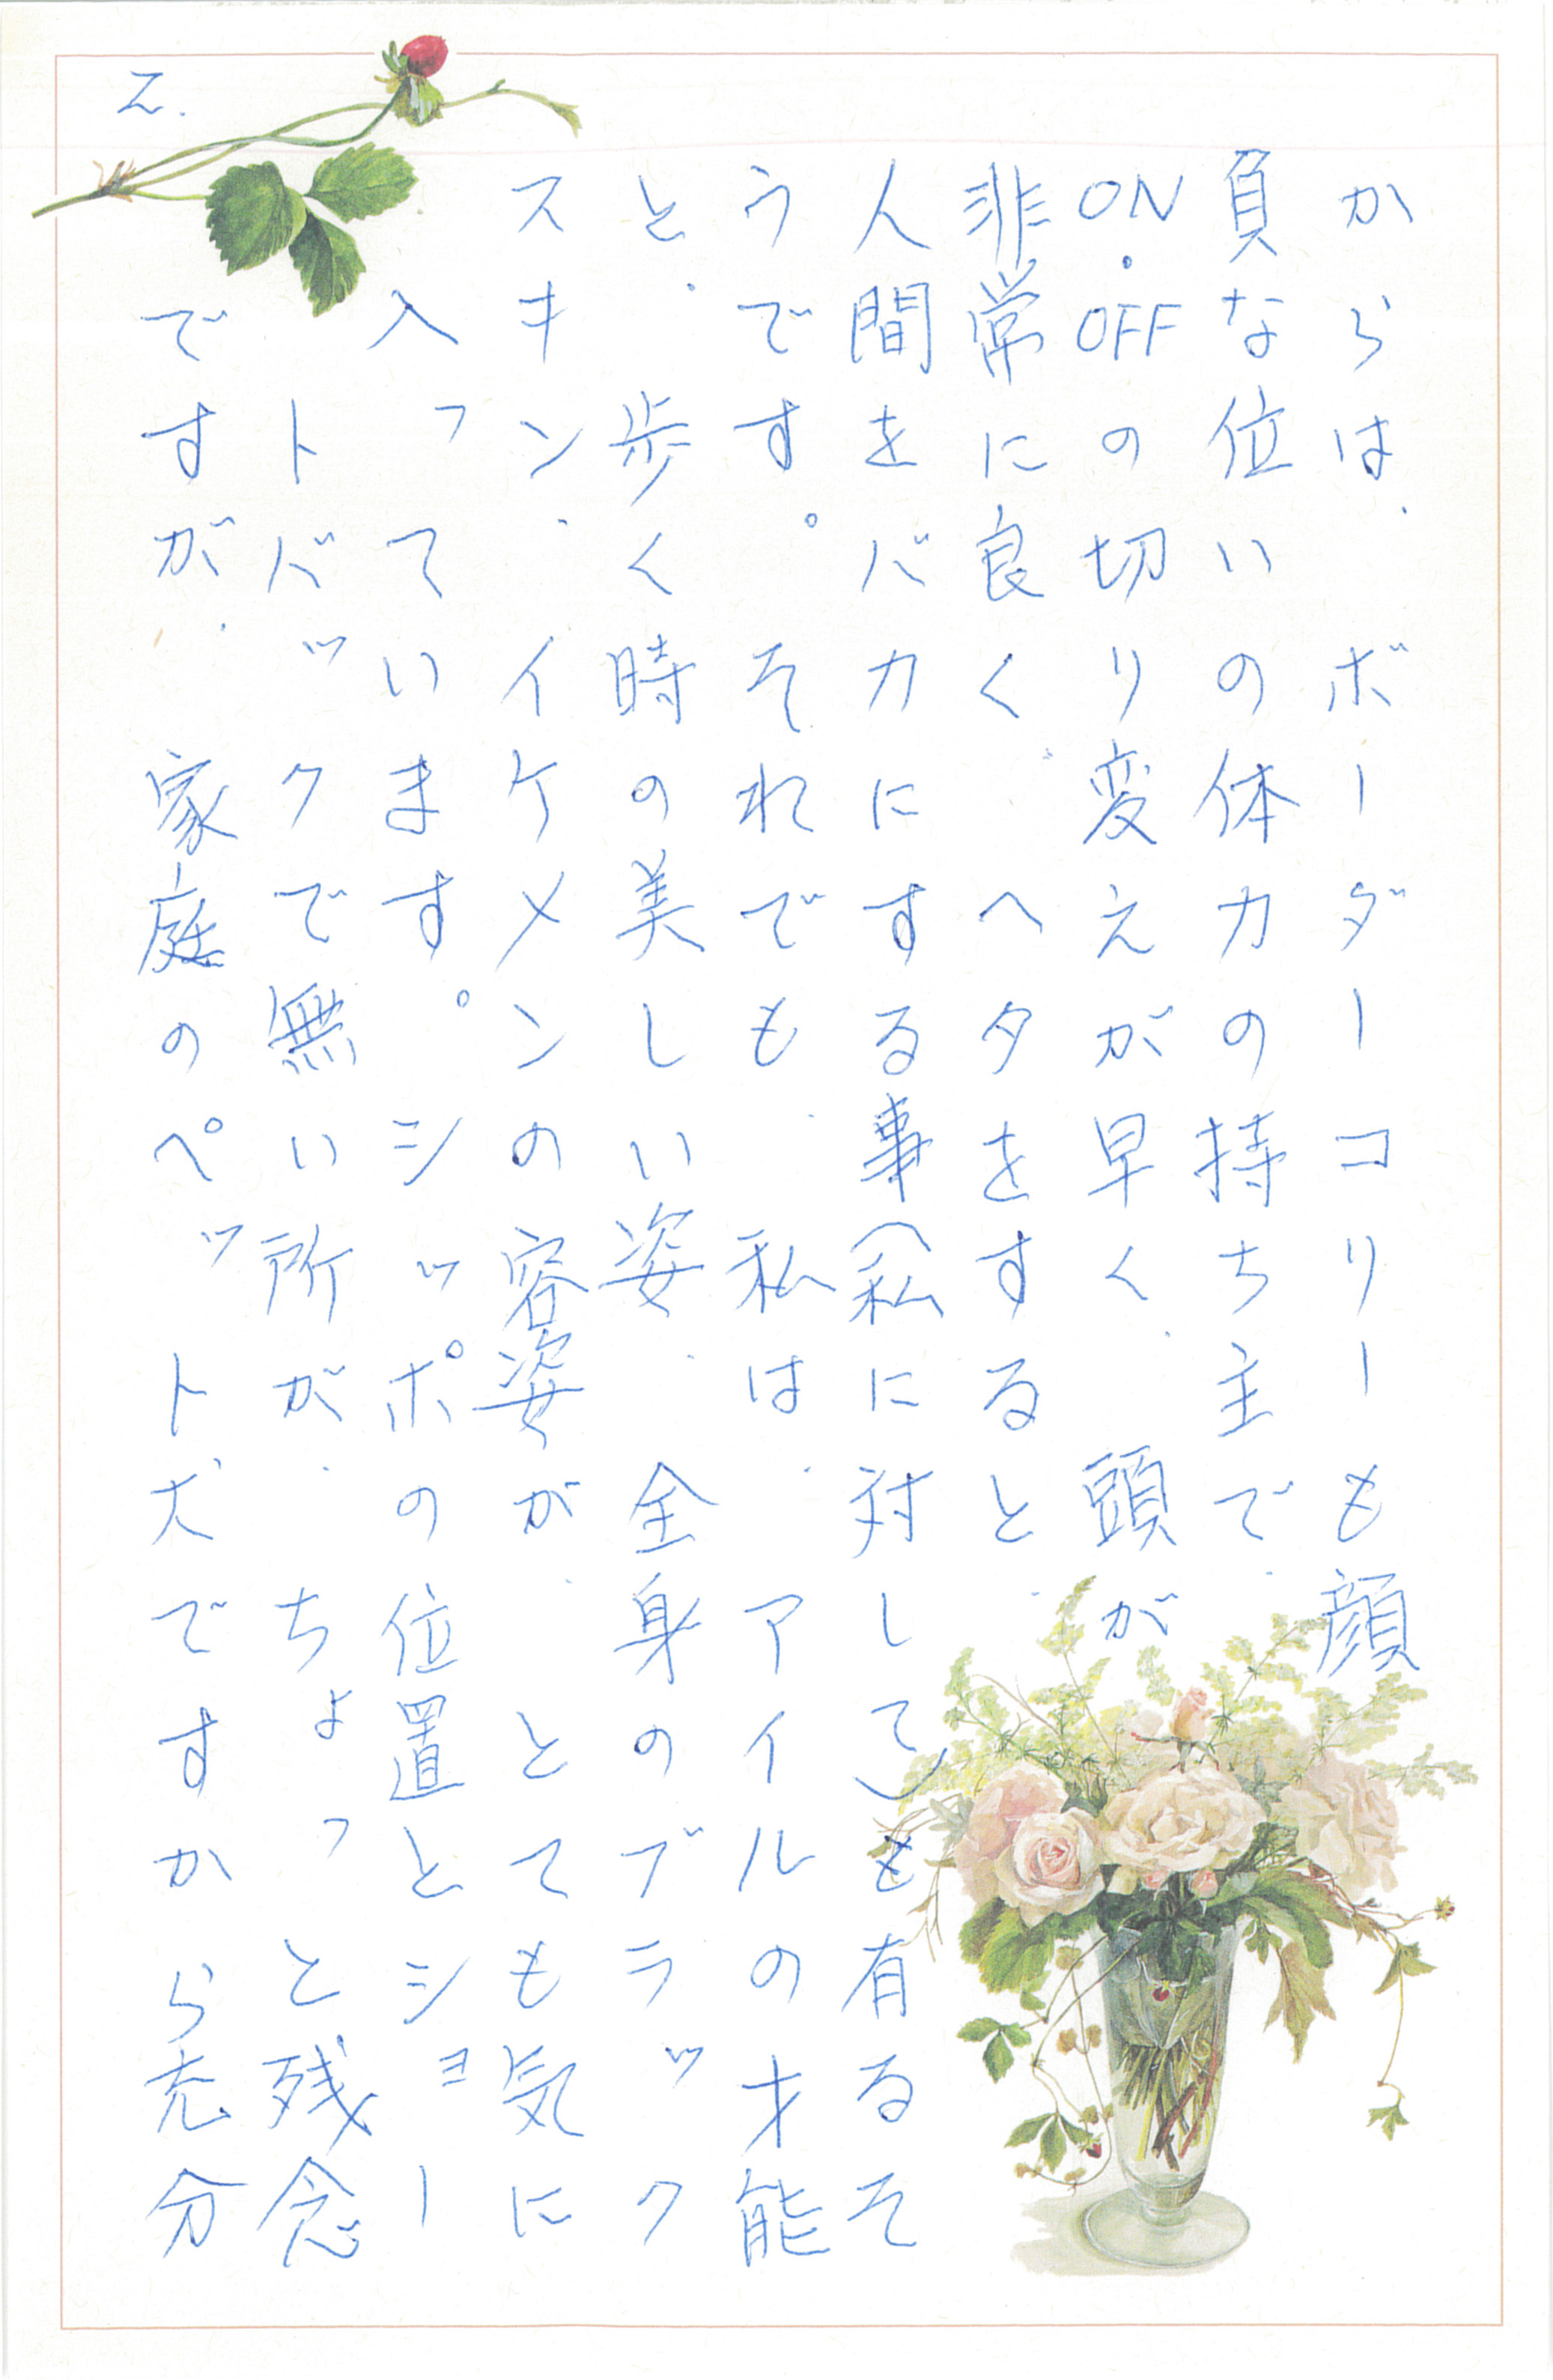 2.
からは、ボーダーコリーも顔
負な位いの体力の持ち主で、
ON・OFFの切り変えが早く、頭が
非常に良く、ヘタをすると、
人間をバカにする事(私に対して)も有るそ
うです。それでも、私は、アイルの才能
と、歩く時の美しい姿、全身のブラック
スキン、イケメンの容姿が、とても気に
入っています。シッポの位置とショー
トバックで無い所が、ちょっと残念
ですが、家庭のペット犬ですから充分